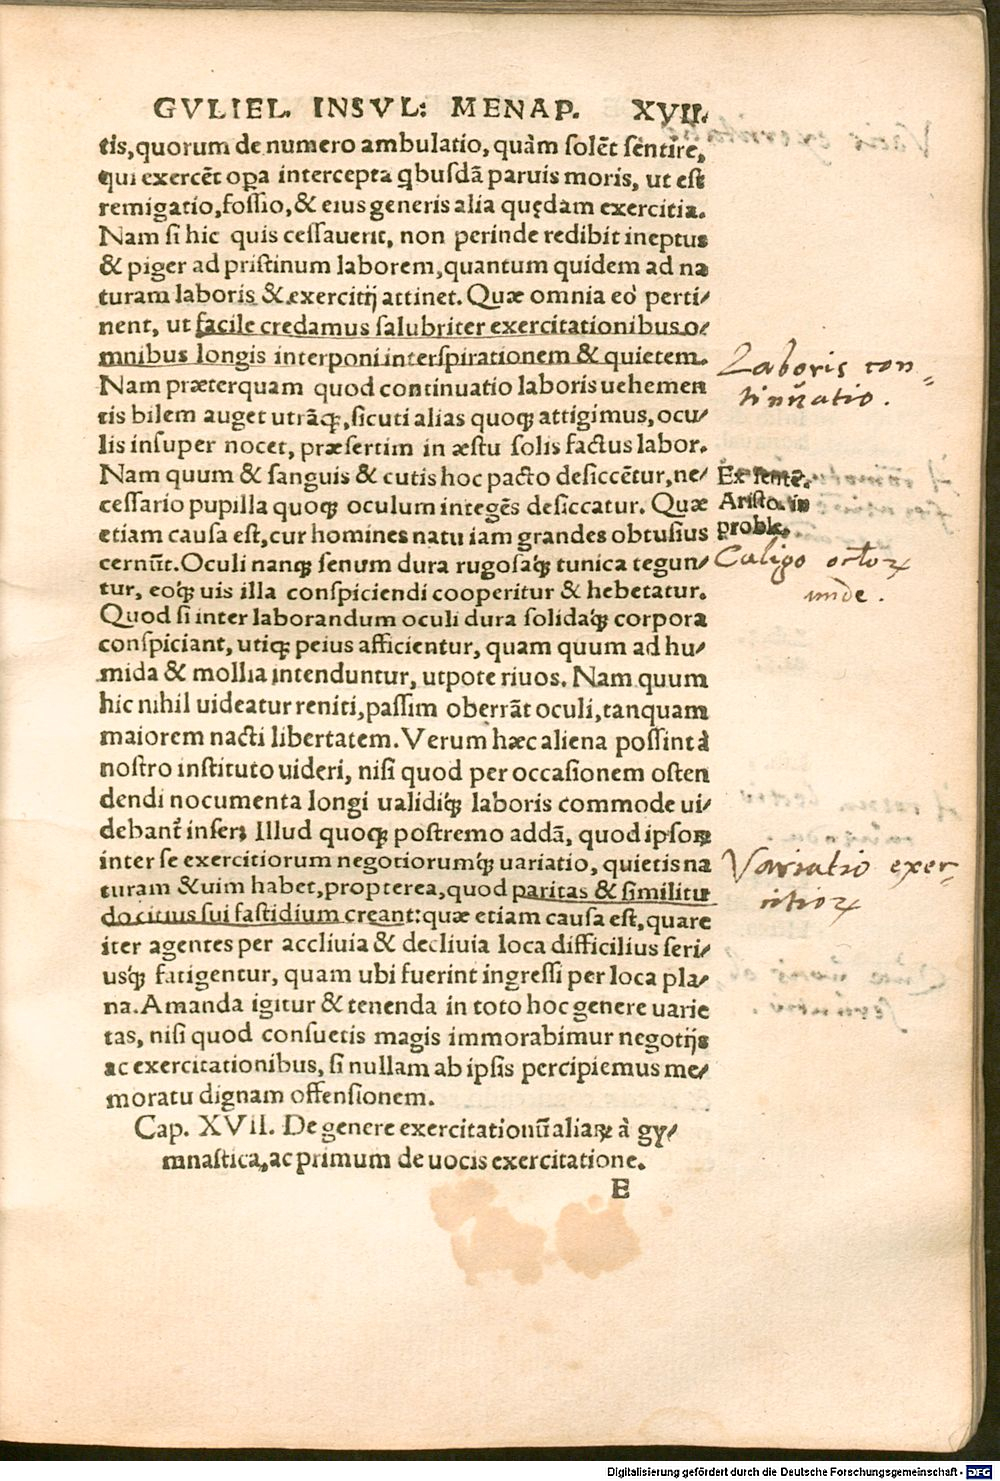 GVLIEL. INSVL: MENAP. XVII.
tis, quorum de numero ambulatio, quàm solẽt sẽntire,
qui exercẽt oꝑa intercepta ꝗbusdã paruis moris, ut est
remigatio, fossio, & eius generis alia quędam exercitia.
Nam si hic quis cessauerit, non perinde redibit ineptus
& piger ad pristinum laborem, quantum quidem ad na
turam laboris & exercitij attinet. Quæ omnia eò perti/
nent, ut facile credamus salubriter exercitationibus o/
mnibus longis interponi interspirationem & quietem.
Nam præterquam quod continuatio laboris uehemen
tis bilem auget utrãq;, sicuti alias quoq; attigimus, ocu/
lis insuper nocet, præsertim in æstu solis factus labor.
Nam quum & sanguis & cutis hoc pacto desiccẽtur, ne/
cessario pupilla quoq; oculum integẽs desiccatur. Quæ
etiam causa est, cur homines natu iam grandes obtusius
cernũt. Oculi nanq; senum dura rugosaq́; tunica tegun/
tur, eoq́; uis illa conspiciendi cooperitur & hebetatur.
Quod si inter laborandum oculi dura solidaq́; corpora
conspiciant, utiq; peius afficientur, quam quum ad hu/
mida & mollia intenduntur, utpote riuos. Nam quum
hic nihil uideatur reniti, passim oberrãt oculi, tanquam
maiorem nacti libertatem. Verum hæc aliena possint à
nostro instituto uideri, nisi quod per occasionem osten
dendi nocumenta longi ualidiq́; laboris commode ui/
debant̃ inseri. Illud quoq; postremo addã, quod ipsoꝝ
inter se exercitiorum negotiorumq́; uariatio, quietis na
turam & uim habet, propterea, quod paritas & similitu
do citius sui fastidium creant: quæ etiam causa est, quare
iter agentes per accliuia & decliuia loca difficilius seri/
usq́; fatigentur, quam ubi fuerint ingressi per loca pla/
na. Amanda igitur & tenenda in toto hoc genere uarie
tas, nisi quod consuetis magis immorabimur negotijs
ac exercitationibus, si nullam ab ipsis percipiemus me/
moratu dignam offensionem.
Cap. XVII. De genere exercitationũ aliaꝝ à gy/
mnastica, ac primum de uocis exercitatione.
E
Laboris con-
tinuatio.
Ex sentẽ.
Aristo. in
proble.
Caligo octoꝝ
unde.
Variatio exer-
citioꝝ
Digitalisierung gefördert durch die Deutsche Forschungsgemeinschaft - DFG